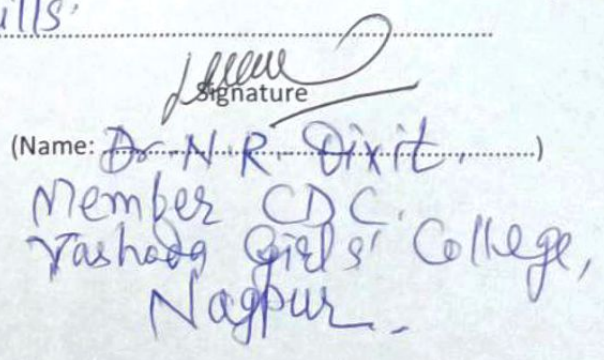 ills.
Signature
(Name: Dr. N. R. Dixit.)
Member CDC.
Yashoda Girls' College,
Nagpur.